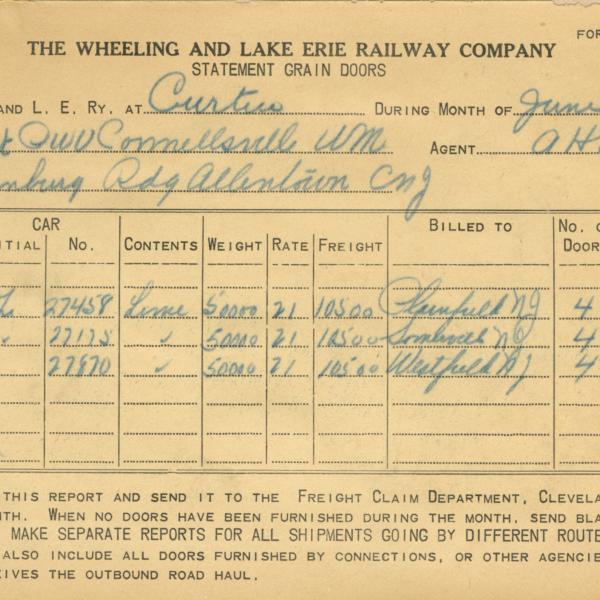 FOR
THE WHEELING AND LAKE ERIE RAILWAY COMPANY
STATEMENT GRAIN DOORS
AND L. E. RY. AT Curtice DURING MONTH OF June
P&WV Connellsville WM AGENT AH
nburg Rdg Allentown CNJ
CAR BILLED TO NO. O
ITIAL NO. CONTENTS WEIGHT RATE FREIGHT DOOR
27458 Lime 50000 21 10500 Plainfield NJ 4
" 27175 " 50000 21 10500 Somerville NJ 4
27870 " 50000 21 10500 Westfield NJ 4
THIS REPORT AND SEND IT TO THE FREIGHT CLAIM DEPARTMENT, CLEVELA
TH. WHEN NO DOORS HAVE BEEN FURNISHED DURING THE MONTH, SEND BLA
MAKE SEPARATE REPORTS FOR ALL SHIPMENTS GOING BY DIFFERENT ROUTE
ALSO INCLUDE ALL DOORS FURNISHED BY CONNECTIONS, OR OTHER AGENCIE
EIVES THE OUTBOUND ROAD HAUL.